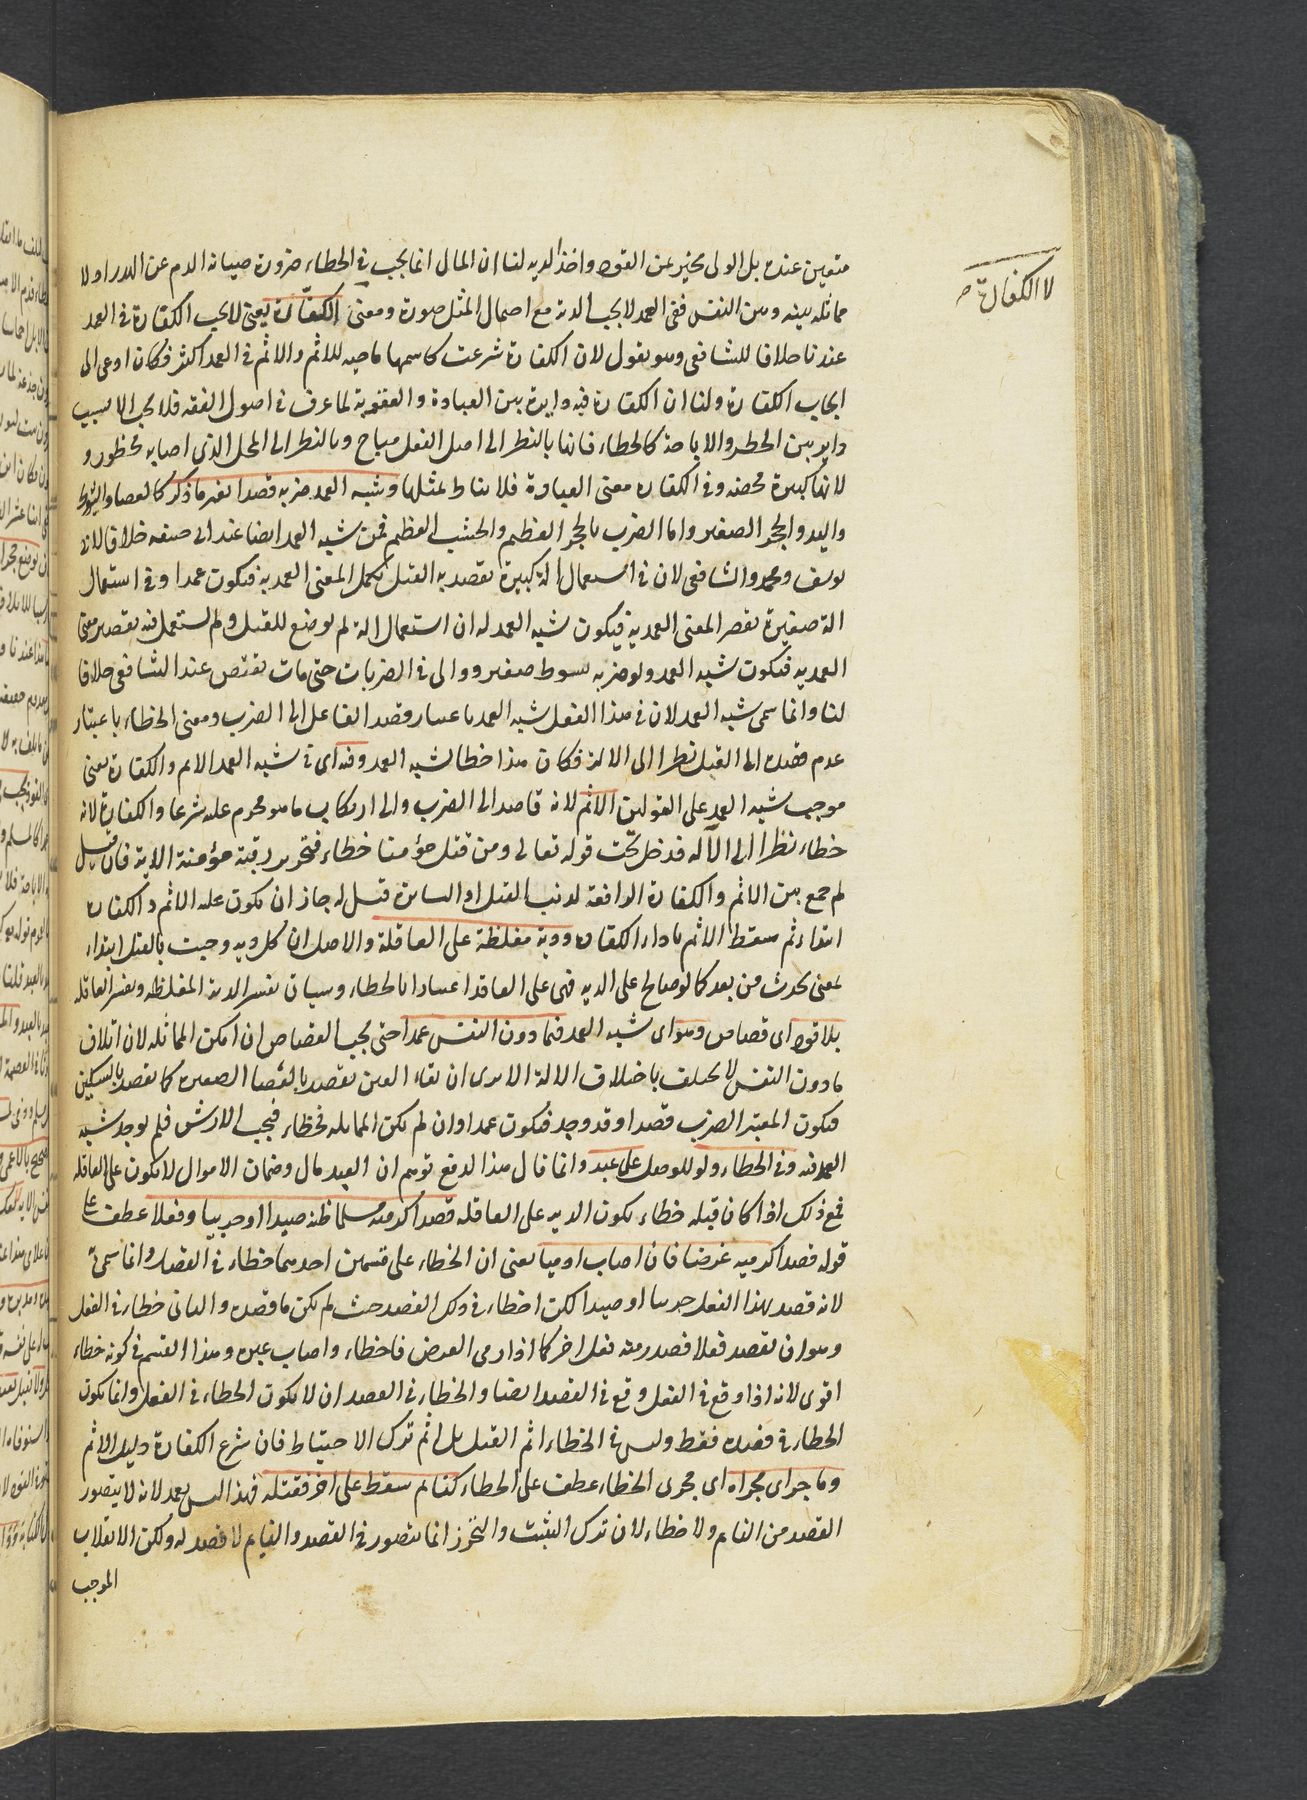 لا الكفارة صح
متعين عنده بل الولى مخير بين القود واخذ الديه لنا ان المال انما يجب فى الخطاء ضرورة صيانة الدم عن الهدر اذ لا
مماثلة بينه وبين النفس ففى العمد لا يجب الدية مع احتمال المثل صورة ومعنى الكفارة يعنى لا يجب الكفارة فى العمد
عندنا خلافا للشافعى وهو يقول لان الكفارة شرعت كاسمها ماحيه للاثم والاثم فى العمد اكثر فكان ادعى الى
ايجاب الكفارة ولنا ان الكفارة فيه دايرة بين العبادة والعقوبة لما عرف فى اصول الفقه فلا يجب الا لسبب
داير بين الحظر والاباحة كالخطاء فانها بالنظر الى اصل الفعل مباح وبالنظر الى المحل الذى اصابه محظور و
لانها كبيرة محضة وفى الكفارة معنى العبادة فلا يناط بمثلها وشبه العمد ضربه قصدا بغير ما ذكر كالعصا والسوط
واليد والحجر الصغير واما الضرب بالحجر العظيم والخشب العظيم فمن شبه العمد ايضا عند ابى حنيفه خلافا لابى
يوسف ومحمد والشافعى لان فى استعمال الة كبيرة يقصد به القتل يكمل المعنى العمديه فيكون عمدا وفى استعمال
الة صغيرة يقصر المعنى العمدية فيكون شبه العمد له ان استعمال الة لم يوضع للقتل ولم يستعمل فيه تقصير معنى
العمديه فيكون شبه العمد ولو ضربه بسوط صغير ووالى فى الضربات حتى مات يقتص عند الشافعى خلافا
لنا وانما سمى شبه العمد لان فى هذا الفعل شبه العمد باعتبار قصد الفاعل الى الضرب ومعنى الخطاء باعتبار
عدم قصده الى القتل نظرا الى الالة فكان هذا خطا لشبه العمد وفيه اى فى شبه العمد الاثم والكفارة يعنى
موجب شبه العمد على القولين الاثم لانه قاصد الى الضرب والى ارتكاب ما هو محرم عليه شرعا والكفارة لانه
خطاء نظرا الى الآله فدخل تحت قوله تعالى ومن قتل مؤمنا خطاء فتحرير رقبة مؤمنة الاية فان قيل
لم جمع بين الاثم والكفارة الرافعة لذنب القتل او الساترة قيل له جاز ان يكون عليه الاثم والكفارة
ابتداء ثم يسقط الاثم باداء الكفارة ودية مغلظة على العاقلة والاصل ان كل ديه وجبت بالقتل ابتداء
لمعنى يحدث من بعد كما لو صالح على الديه فهى على العاقلة اعتبارا بالخطاء وسيأتى تفسير الدية المغلظه وتفسير العاقلة
بلا قود اى قصاص وهو اى شبه العمد فيما دون النفس عمدا حتى يجب القصاص ان امكن المماثله لان اتلاف
ما دون النفس لا يختلف باختلاف الالة الا يرى ان فقاء العين يقصد بالعصا الصغيره كما يقصد بالسكين
فيكون المعتبر الضرب قصدا وقد وجد فيكون عمدا وان لم يكن المماثله فخطاء فيجب الارش فلم يوجد شبه
العمد فيه وفى الخطاء ولو للوصل على عبد وانما قال هذا لدفع توهم ان العبد مال وضمان الاموال لا يكون على العاقلة
فمع ذلك اذا كان قتله خطاء يكون الديه على العاقله قصدا كرميه مسلما ظنه صيدا او حربيا وفعلا عطف على
قوله قصدا كرميه غرضا فاذا اصاب ادميا يعنى ان الخطاء على قسمين احدهما خطاء فى القصد وانما سمى به
لانه قصد بهذا الفعل حربيا او صيدا لكن اخطاء فى ذلك القصد حيث لم يكن ما قصده والثانى خطاء فى الفعل
وهو ان يقصد فعلا فصدر منه فعل اخر كما اذا رمى الغرض فاخطاء واصاب غيره وهذا القسم فى كونه خطاء
اقوى لانه اذا وقع فى الفعل وقع فى القصد ايضا والخطاء فى القصد ان لا يكون الخطاء فى الفعل وانما يكون
الخطاء فى قصده فقط وليس فى الخطاء اثم القتل بل اثم ترك الاحتياط فان شرع الكفارة دليل الاثم
وما جرى مجراه اى مجرى الخطاء عطف على الخطاء كنائم سقط على اخر فقتله فهذا ليس بعمد لانه لا يتصور
القصد من النائم ولا خطاء لان ترك التثبت والتحرز انما يتصور فى القصد والنيام لا قصد له ولكن الانقلاب
الموجب